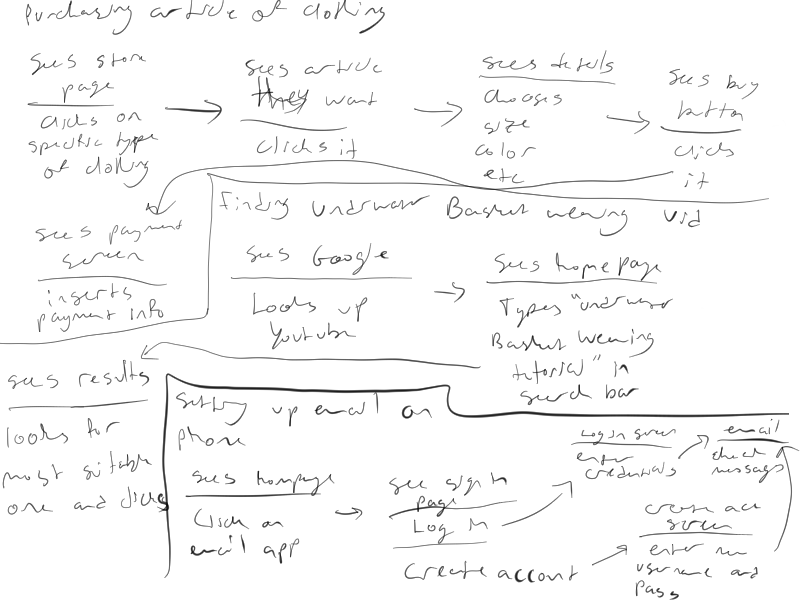 Purchasing article of clothing
sees store
page
clicks on
specific type
of clothing
sees article
they want
clicks it
sees details
chooses
size
color
etc
sees buy
button
clicks
it
sees payment
screen
inserts
payment info
finding underwater Basket weaving vid
sees Google
Looks up
Youtube
sees homepage
Types "underwater
Basket weaving
tutorial" in
search bar
sees results
looks for
most suitable
one and clicks
setting up email on
phone
sees homepage
Click on
email app
see sign in
page
Log in
Create account
Log in screen
enter
credentials
email
check
messages
create acc
screen
enter new
username and
pass